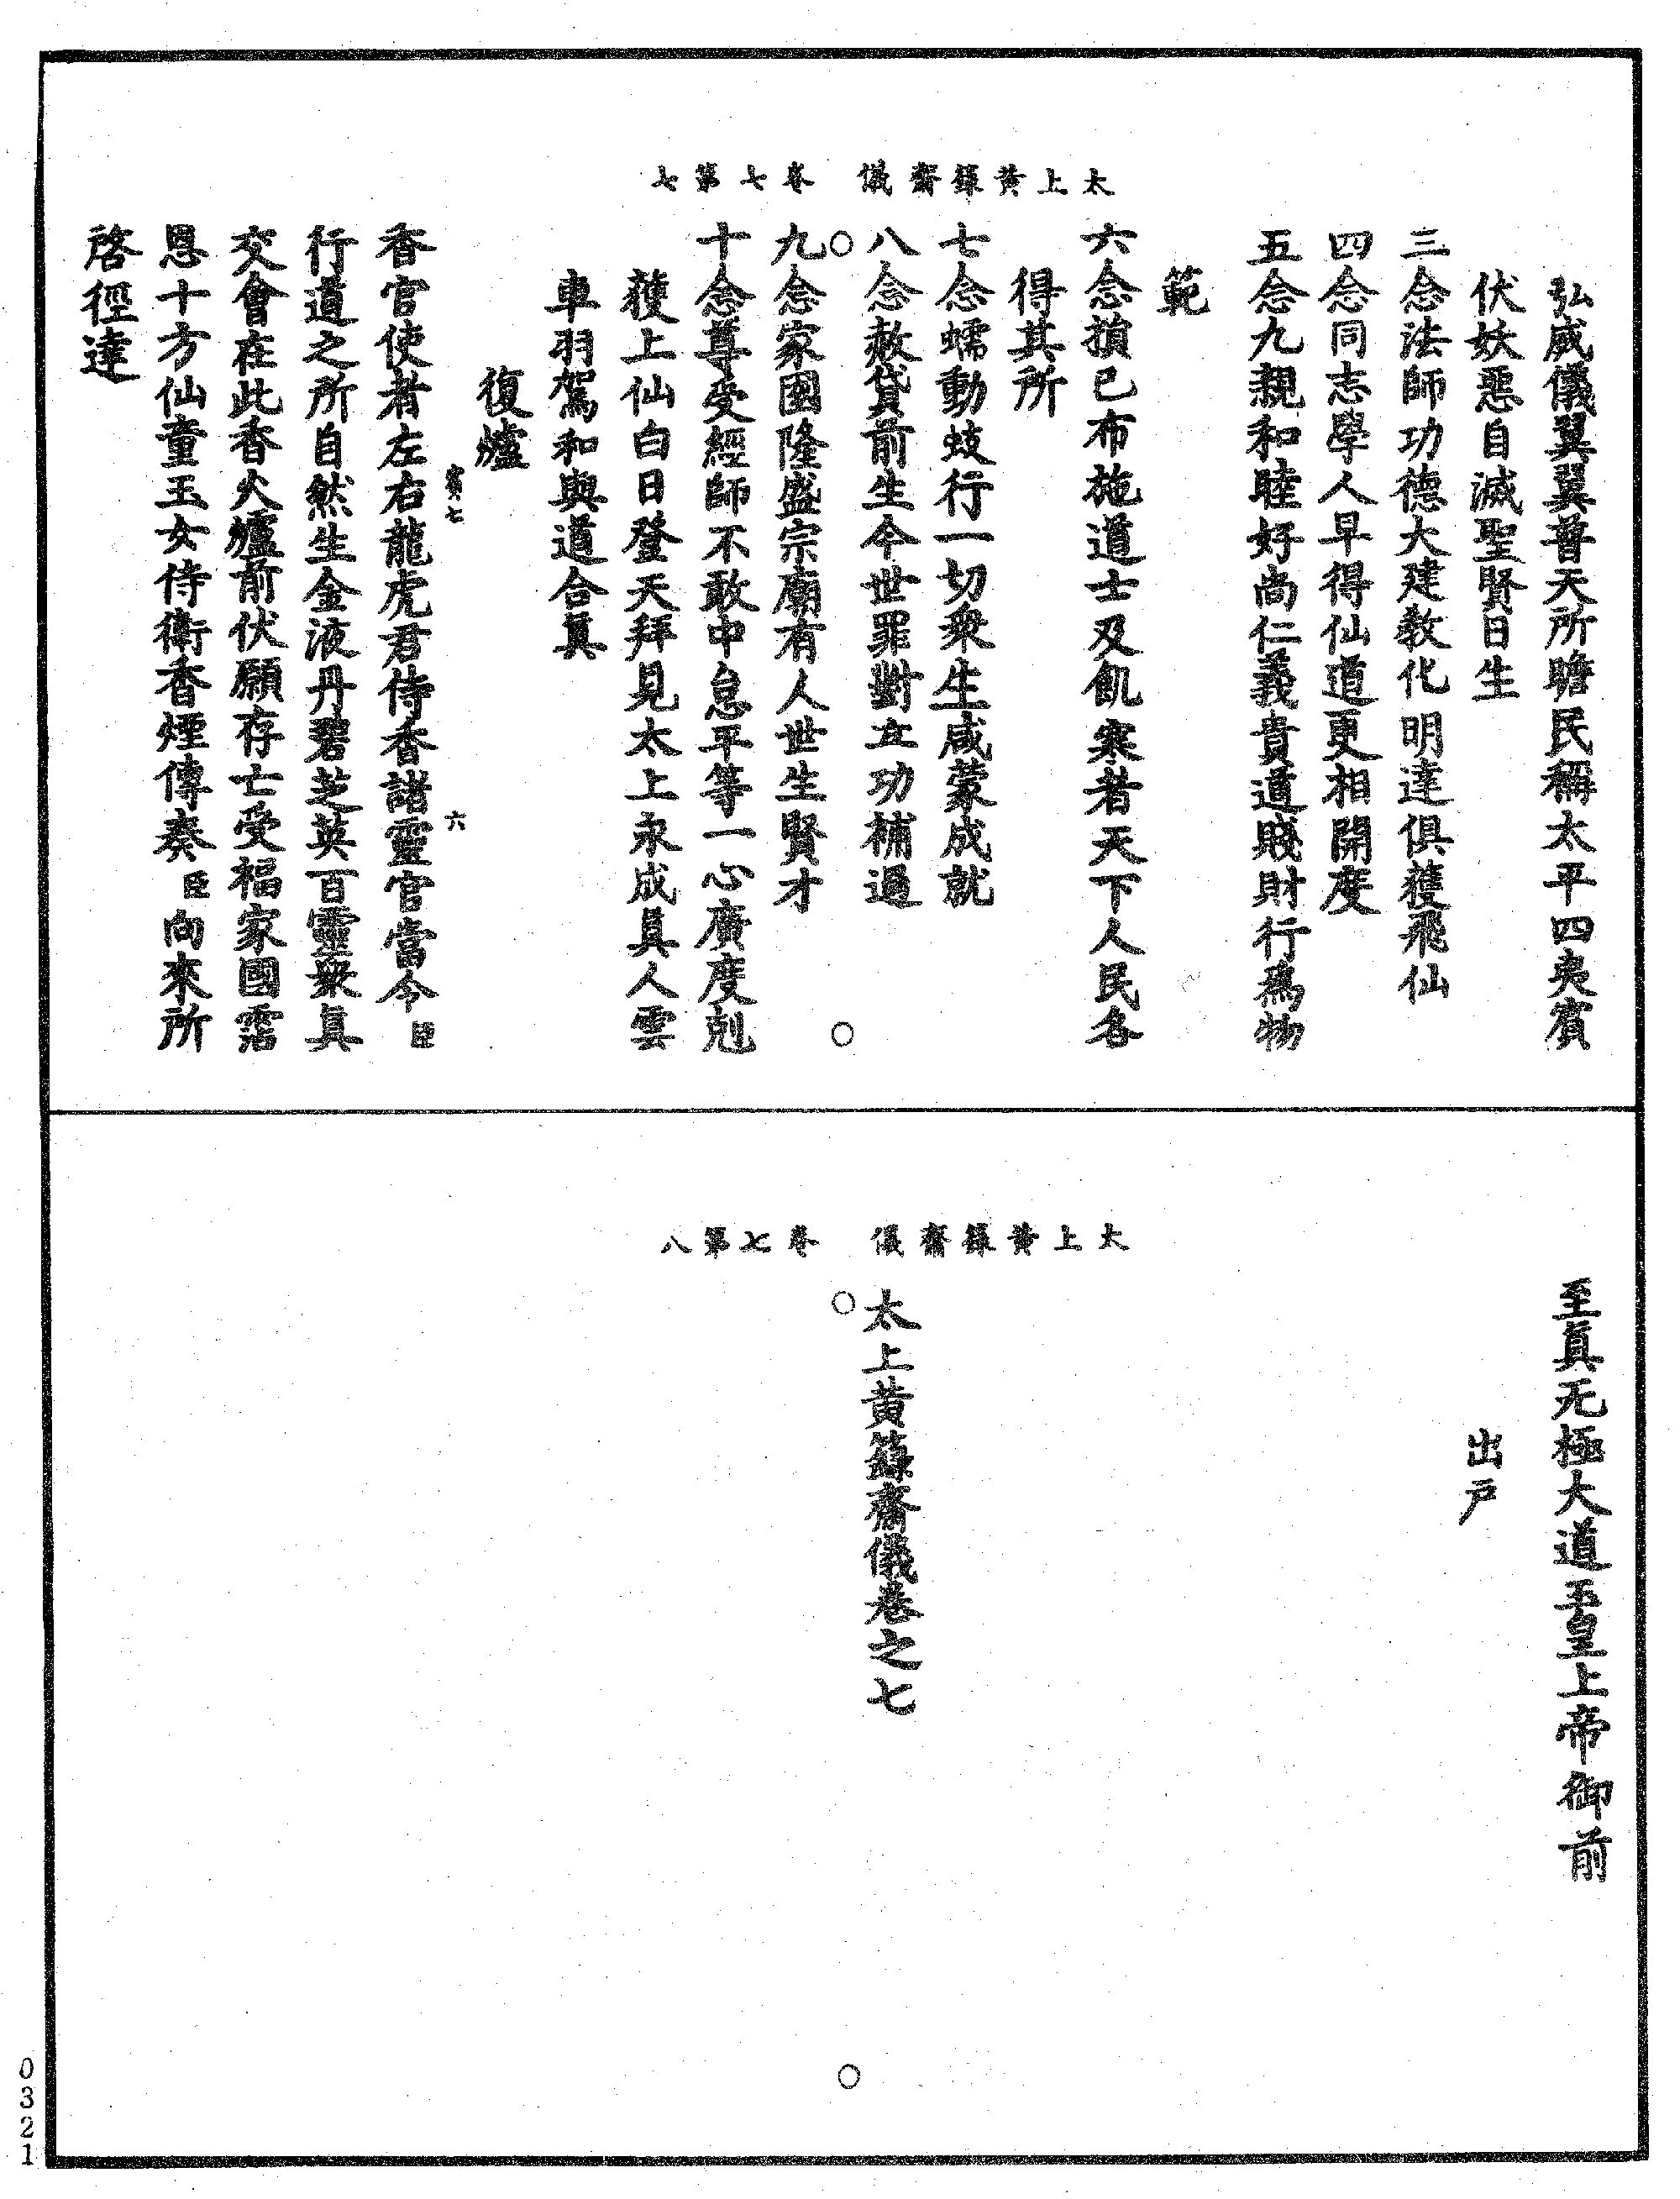 太上黃籙齋儀 卷七第七
弘威儀翼翼普天所瞻民稱太平四夷賓
伏妖惡自滅聖賢日生
三念法師功德大建教化明達俱獲飛仙
四念同志學人早得仙道更相開度
五念九親和睦好尚仁義貴道賤財行為物
範
六念損已布施道士及飢寒者天下人民各
得其所
七念蠕動蚑行一切衆生咸蒙成就
八念赦貸前生今世罪對立功補過
九念家國隆盛宗廟有人世生賢才
十念尊受經師不敢中怠平等一心廣度剋
獲上仙白日登天拜見太上永成真人雲
車羽駕和與道合眞
復爐
七 六
香官使者左右龍虎君侍香諸靈官當令臣
行道之所自然生金液丹碧芝英百靈衆眞
交會在此香火爐前伏願存亡受福家國霑
恩十方仙童玉女侍衛香煙傳奏臣向來所
啓徑達
太上黃籙齋儀 卷七第八
至眞无極大道玉皇上帝御前
出戶
太上黃籙齋儀卷之七
0321